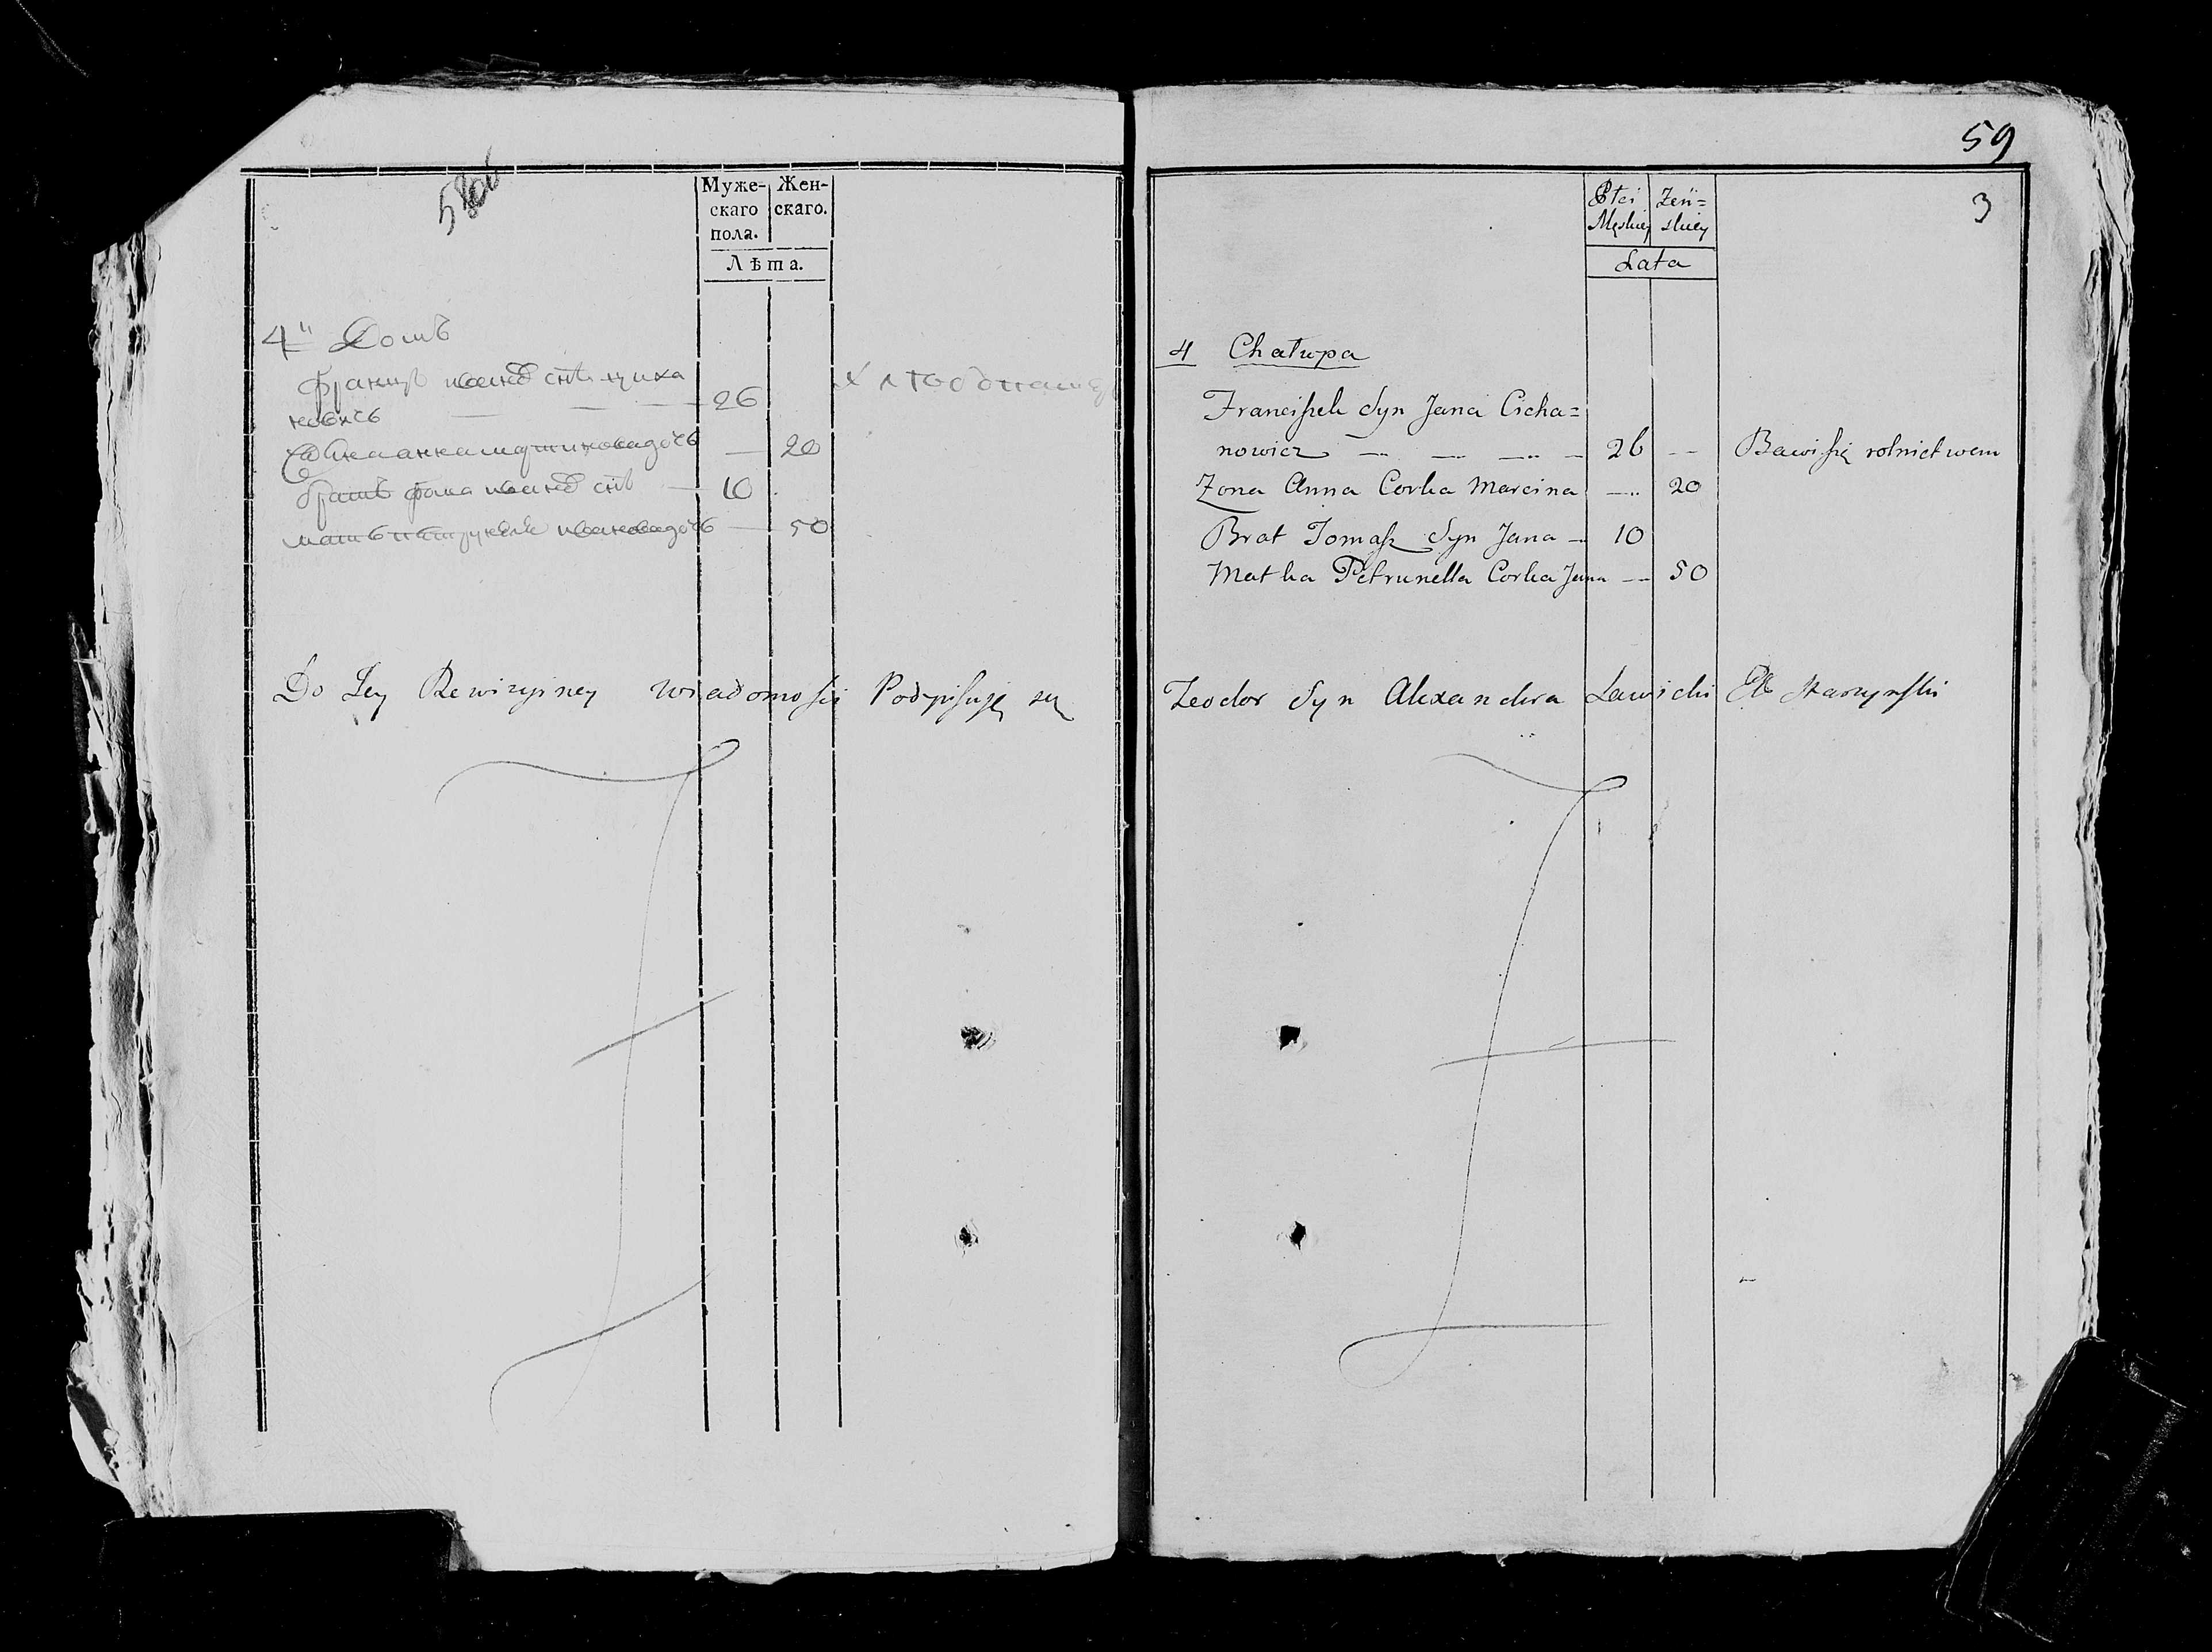 Муже-
скаго
пола.
Жен-
скаго.
Лѣта.
4" Домъ
Францъ ивановъ снъ циха
новичъ — — — 26
Жена анна мартинова дочь — 20
братъ фома ивановъ снъ — 10
мать петрунеля иванова дочь — 50
Do Tey Rewizyiney Wiadomości Podpisuję się
59
3
Płci
Męskiey
Żeń=
skiey
Lata
4 Chałupa
Franciszek Syn Jana Cicha=
nowicz — — — — 26 — Bawi się rolnictwem
Zona Anna Corka Marcina — 20
Brat Tomasz Syn Jana — 10
Matka Petrunella Corka Jana — 50
Teodor Syn Alexandra Ławicki